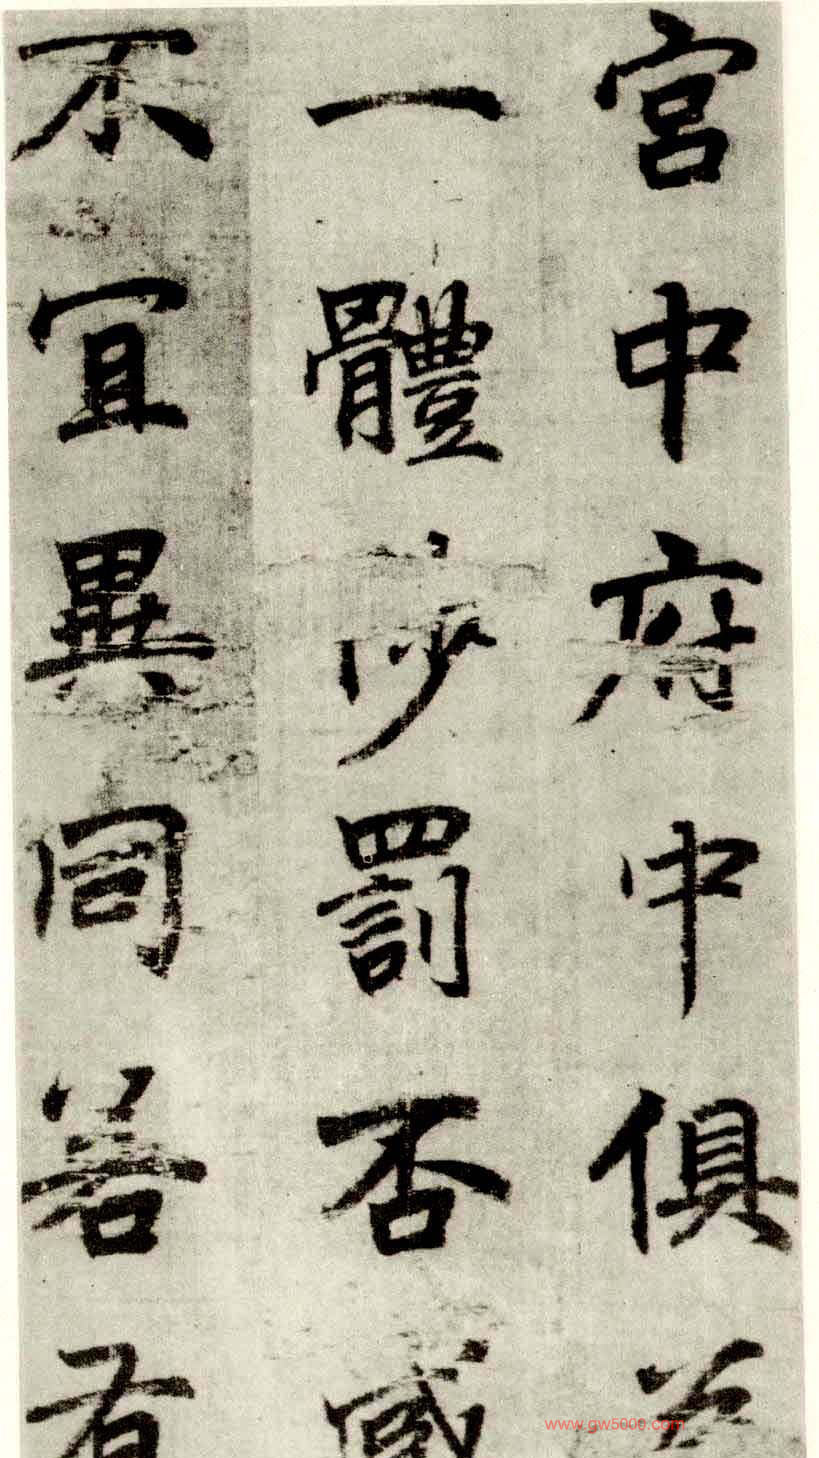 宮中府中俱
一體陟罰否
不宜異同若有
www.gw5000.com